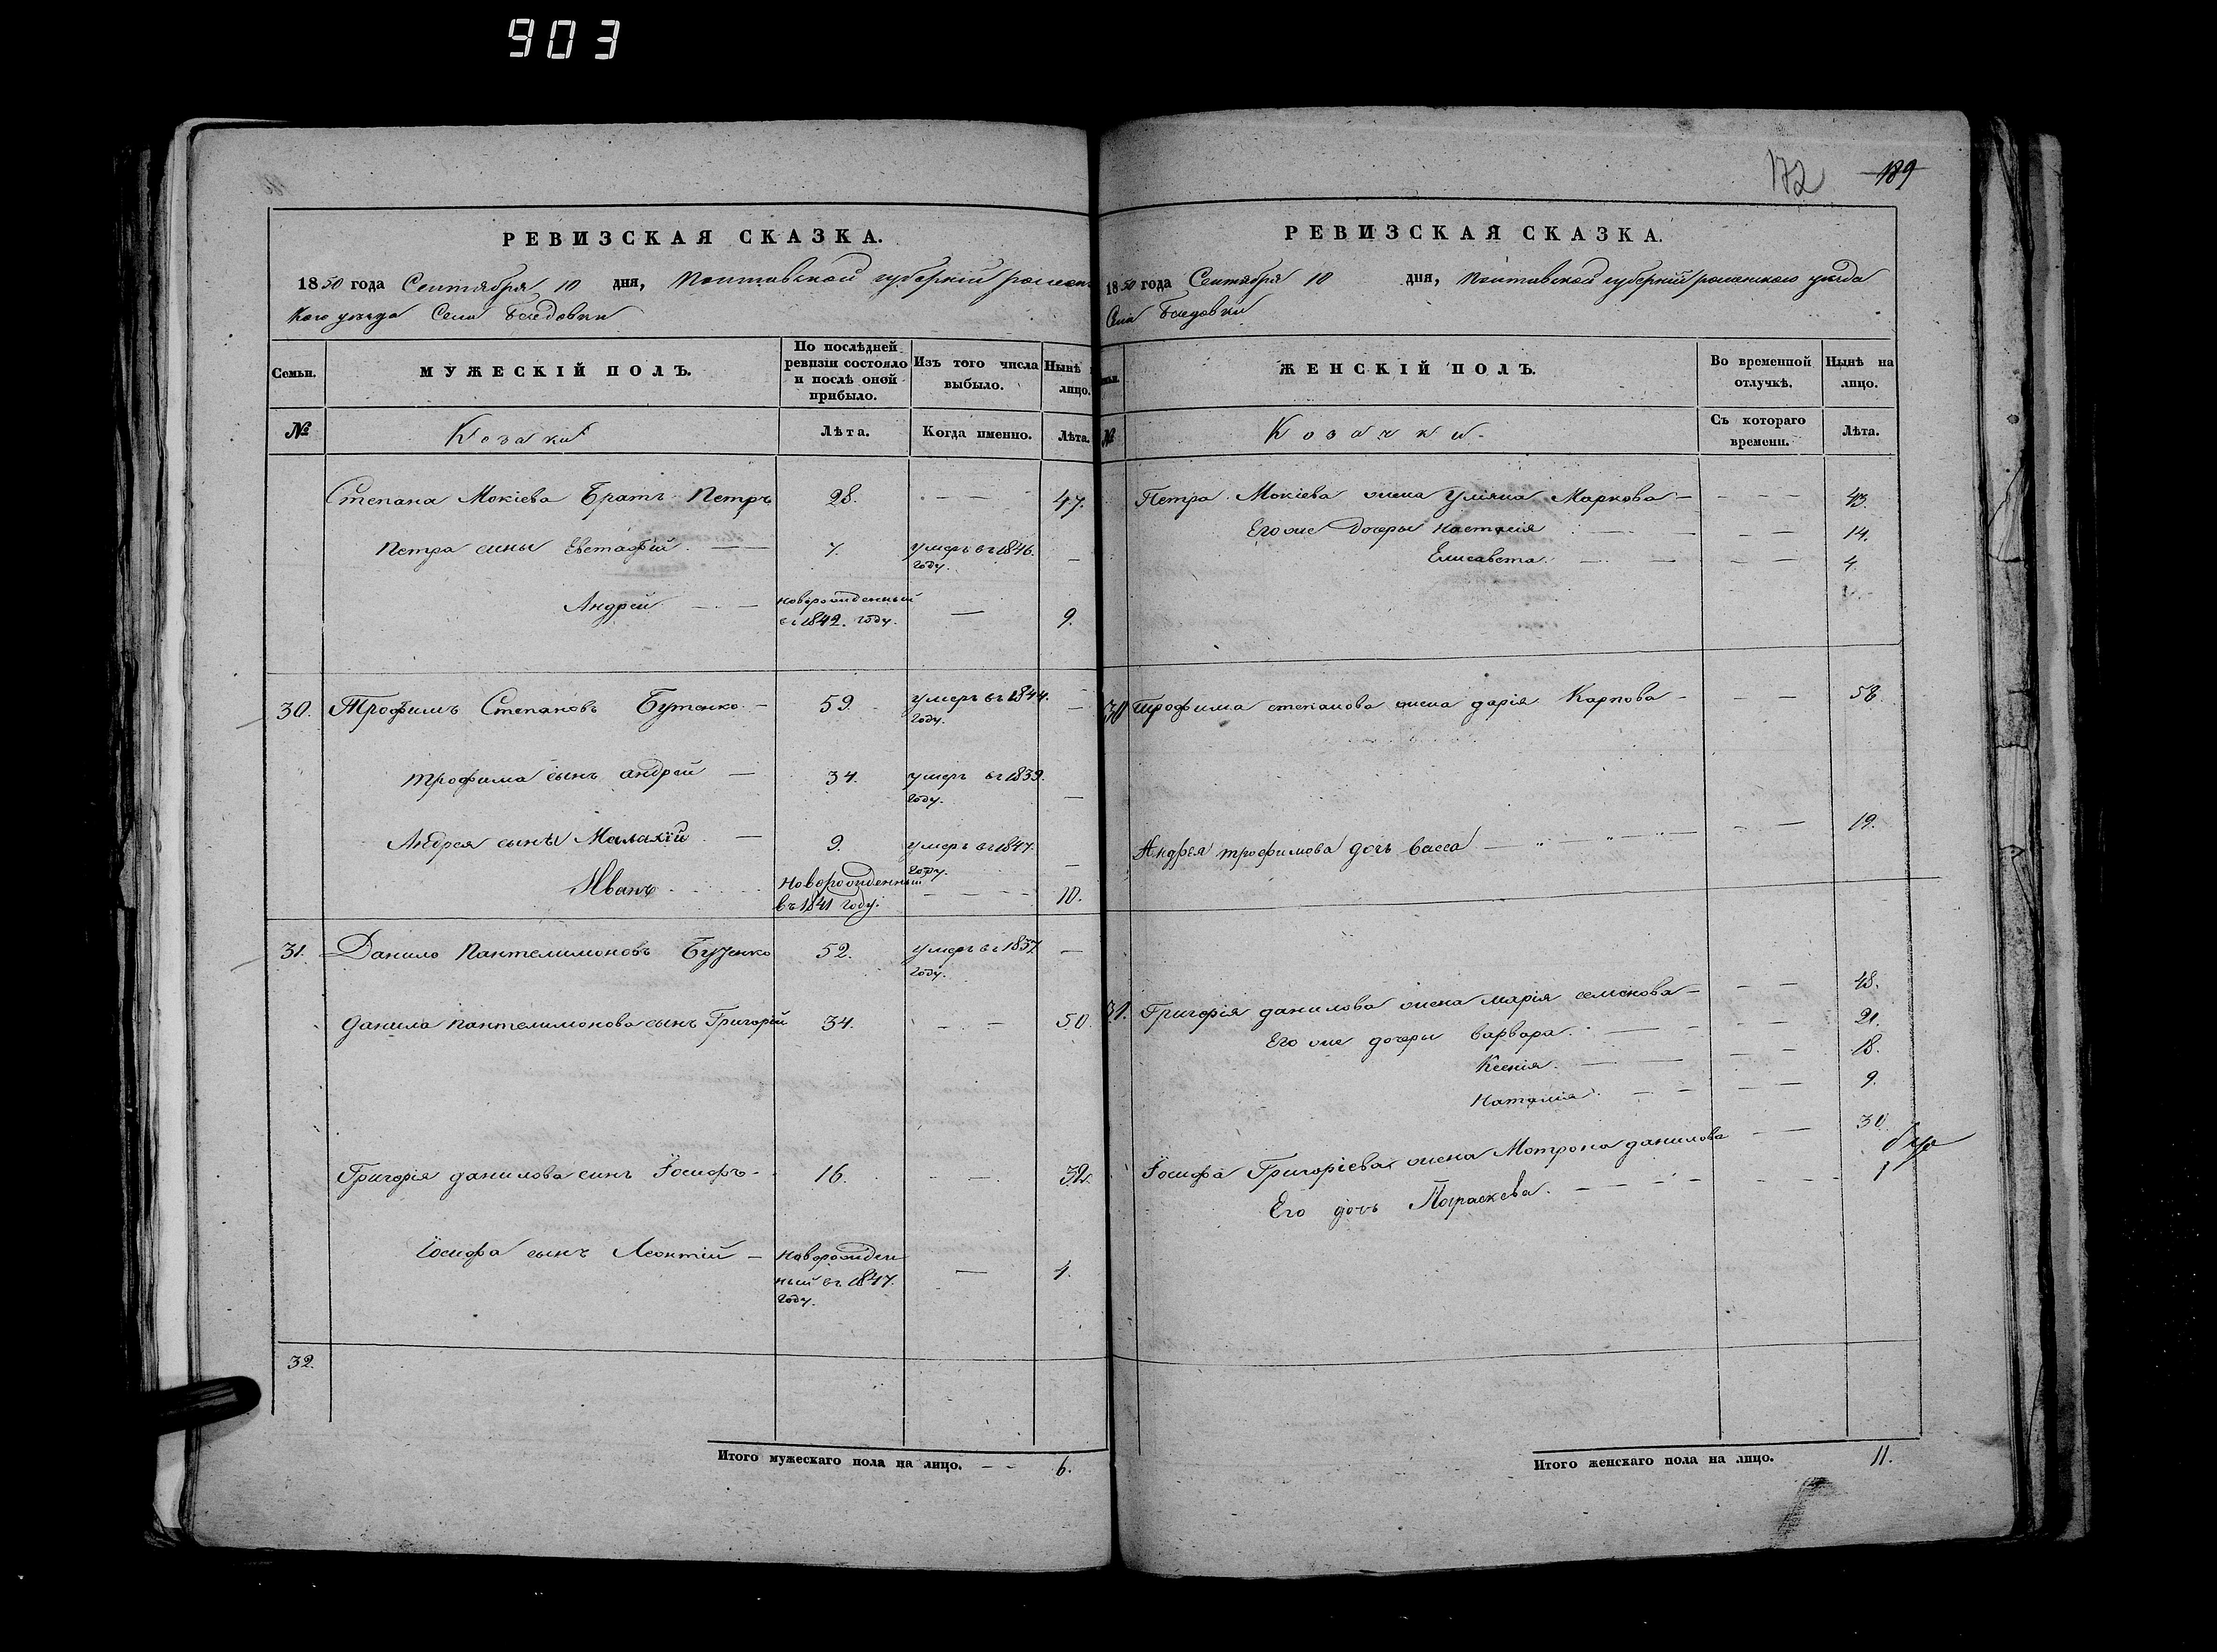 903
172 189
РЕВИЗСКАЯ СКАЗКА.
1850 года Сентября 10 дня, Полтавской губерніи ромен
кого уезда Села Баедовки
Семьи. МУЖЕСКІЙ ПОЛЪ. По послѣдней ревизіи состояло и послѣ оной прибыло. Изъ того числа выбыло. Нынѣ лицо.
№ Козаки Лѣта. Когда именно. Лѣта.
Степана Мокіева Братъ Петръ 28. — — 47.
Петра сины Евстафій — 7. умеръ въ 1846. году. —
Андрей — — новорожденный въ 1842. году. — 9.
30. Трофимъ Степановъ Бутенко — 59. умеръ въ 1844. году. —
Трофима сынъ андрей — 34. умеръ въ 1839. году. —
Андрея сыны Малахій — 9. умеръ въ 1847. году. —
Иванъ новорожденный въ 1841 году. — — 10.
31. Данило Пантелимоновъ Буценко 52. умеръ въ 1837 году. —
Данила пантелимонова сынъ Григорій 34. — — 50.
Григорія данилова синъ Іосифъ - 16. — — 32.
Іосифа сынъ Леонтій — новорожден ный въ 1847. году. — 4.
32.
Итого мужескаго пола на лицо. — — 6.
РЕВИЗСКАЯ СКАЗКА.
1850 года Сентября 10 дня, Полтавской губерніи роменского уезда
Села Баедовки
ЖЕНСКІЙ ПОЛЪ. Во временной отлучкѣ. Нынѣ на лицо.
№ Козачки. Съ котораго времени. Лѣта.
Петра Мокіева жена Уліяна Маркова — — — 43.
Его же дочеры Настасія — — — 14.
Елисавета — — — 4
30 Трофима степанова жена дарія Карпова — — — 58
Андрея трофимова дочь васса — — — 19.
31. Григорія данилова жена марія семенова — — — 48.
Его же дочеры варвара — — — 21.
Ксенія — — — 18.
Наталія — — — 9.
Іосифа Григоріева жена Мотрона данилова — — 30
Его дочь Параскева — — — 1
Итого женскаго пола на лицо. 11.